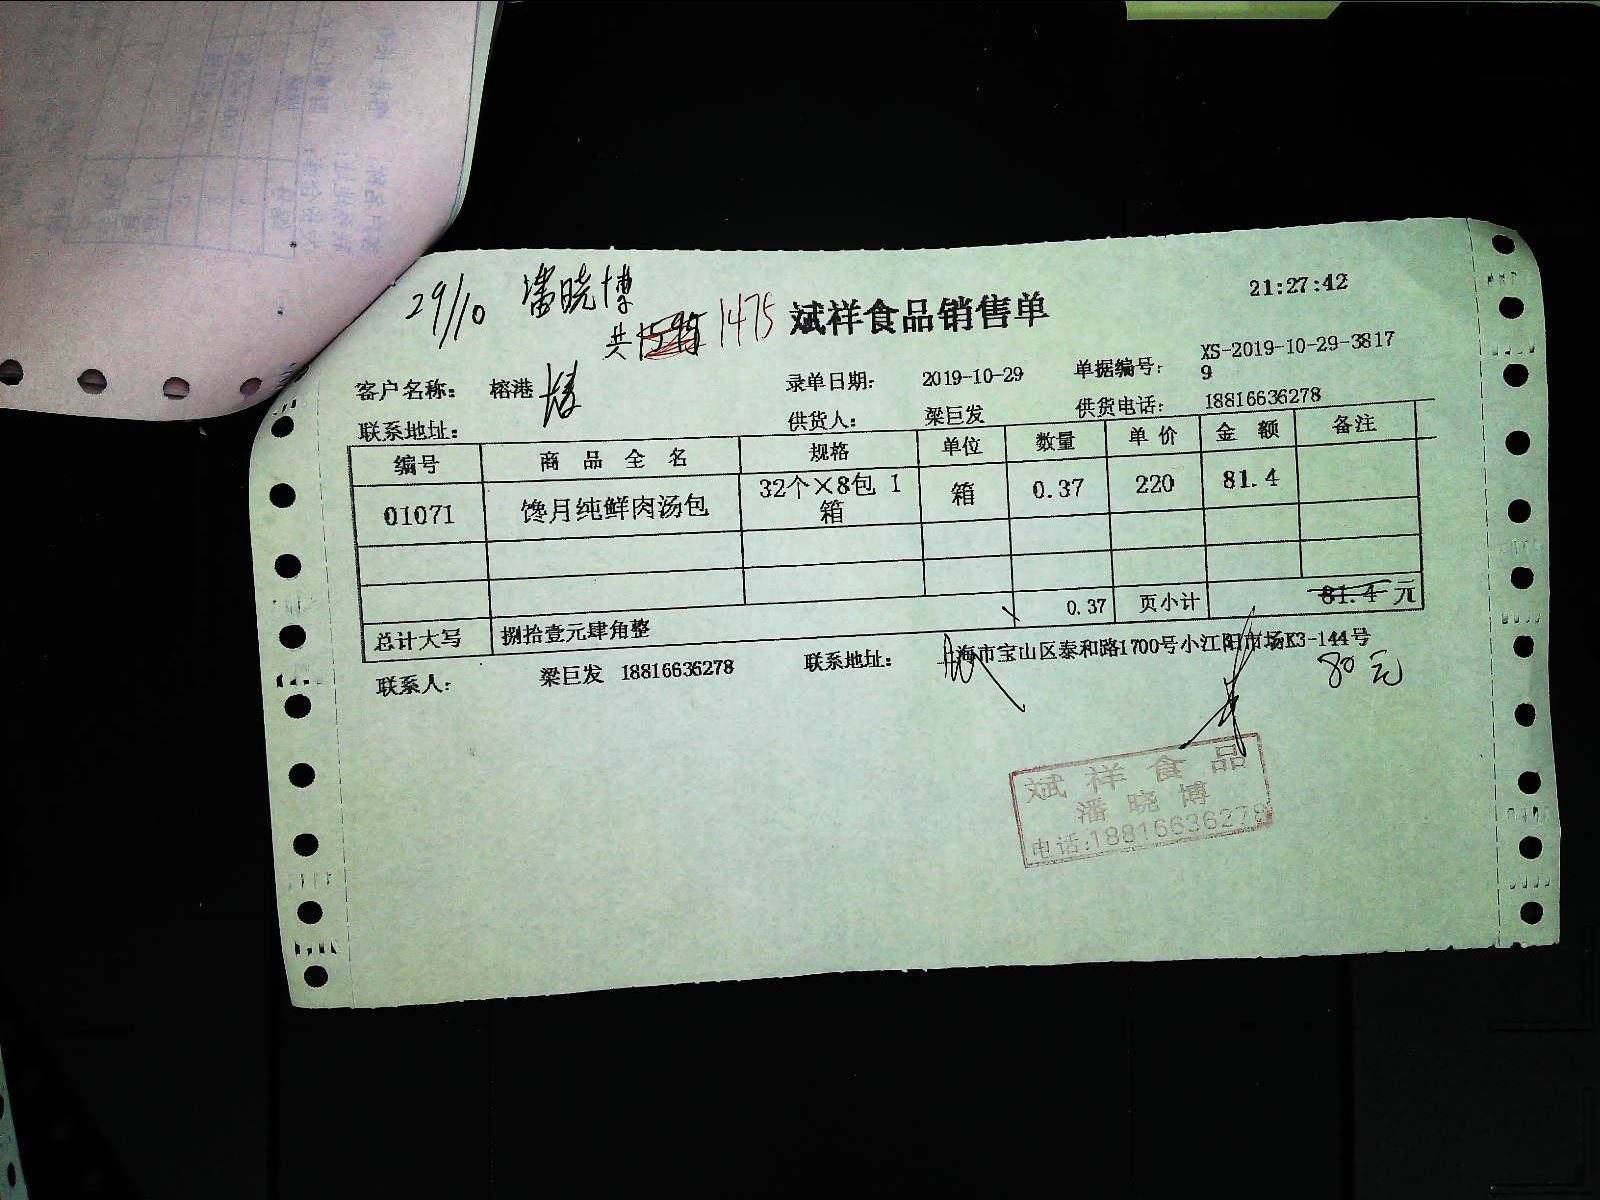 29/10 潘晓博
共1595 1475
斌祥食品销售单
21:27:42
客户名称： 榕港
录单日期： 2019-10-29
单据编号： XS-2019-10-29-3817
9
联系地址：
供货人： 梁巨发
供货电话： 18816636278
编号 商品全名 规格 单位 数量 单价 金额 备注
01071 馋月纯鲜肉汤包 32个×8包 1箱 箱 0.37 220 81.4
0.37 页小计 81.4 元
总计大写 捌拾壹元肆角整
联系人： 梁巨发 18816636278 联系地址： 上海市宝山区泰和路1700号小江阳市场K3-144号
80元
斌祥食品
潘晓博
电话:18816636278